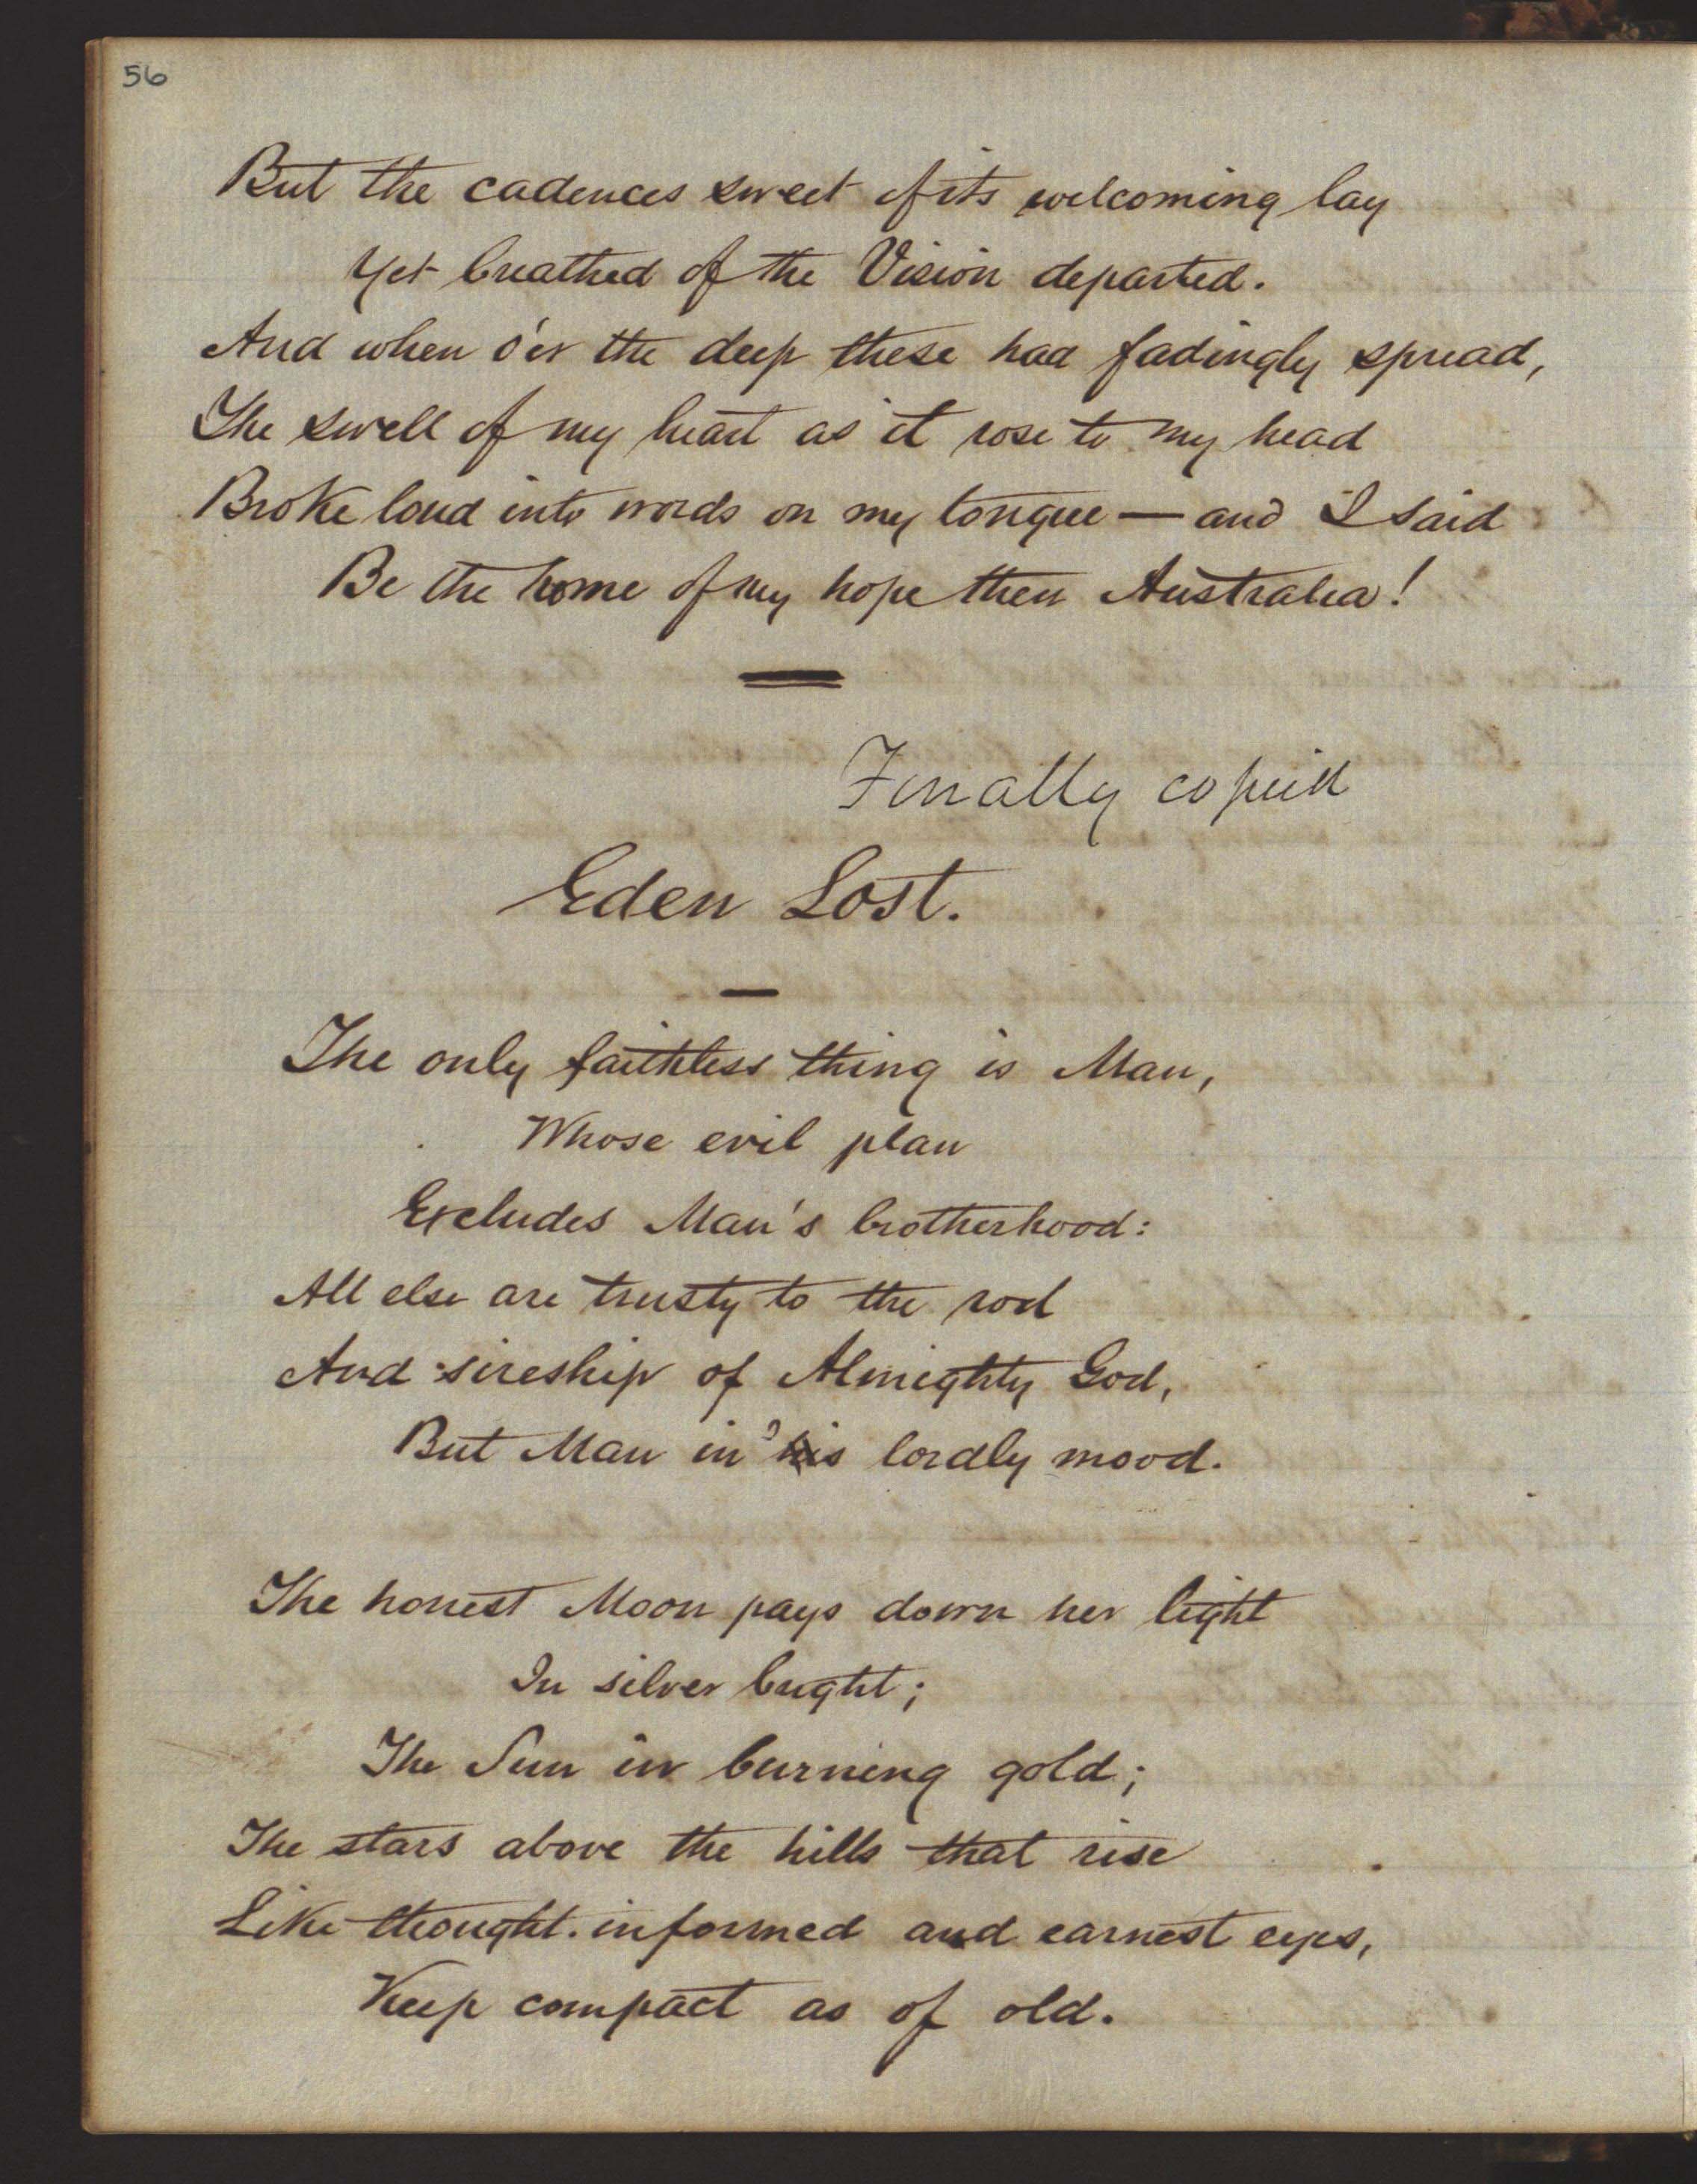 56
But the cadences sweet of its welcoming lay
Yet breathed of the Vision departed.
And when o'er the deep these had fadingly spread,
The swell of my heart as it rose to my head
Broke loud into words on my tongue — and I said
Be the home of my hope then Australia!
Finally copied
Eden Lost.
The only faithless thing is Man,
Whose evil plan
Excludes Man's brotherhood:
All else are trusty to the rod
And sireship of Almighty God,
But Man in his lordly mood.
The honest Moon pays down her light
In silver bright;
The Sun in burning gold;
The stars above the hills that rise
Like thought-informed and earnest eyes,
Keep compact as of old.